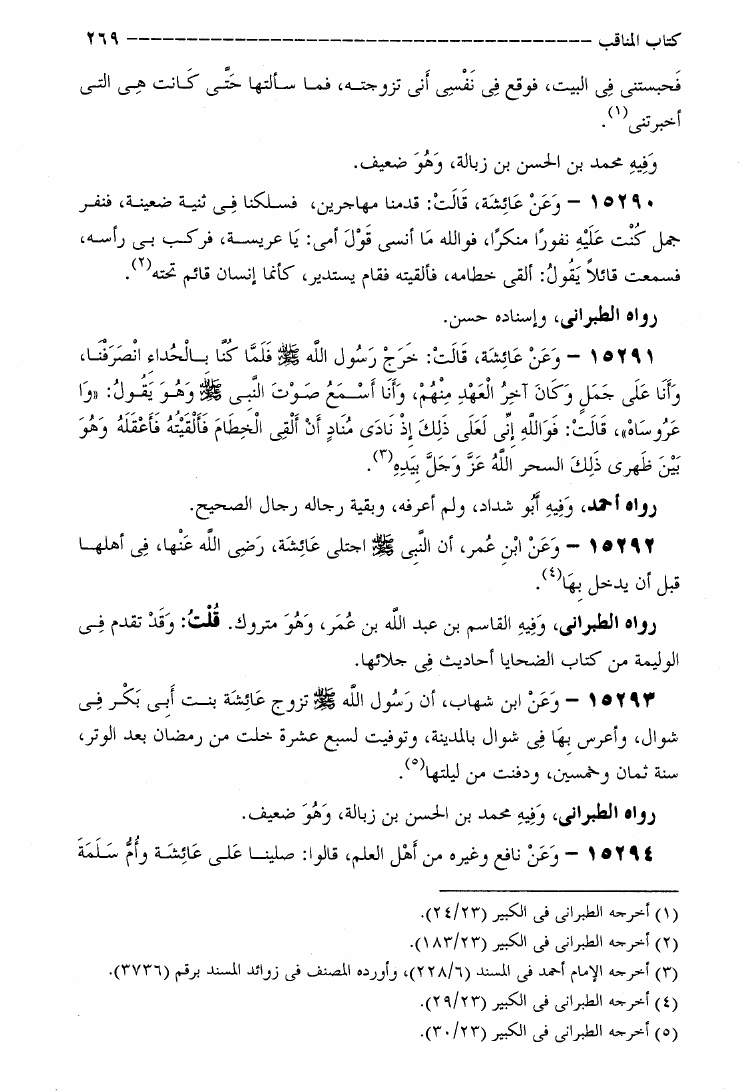 كتاب المناقب ------------------------------------------- ٢٦٩
فَحبستنى فِى البيت، فوقع فِى نَفْسِى أنى تزوجته، فما سألتها حَتَّى كَانت هِى التى
أخبرتنى(١).
وَفِيهِ محمد بن الحسن بن زبالة، وَهُوَ ضعيف.
١٥٢٩٠ – وَعَنْ عَائِشَة، قَالَتْ: قدمنا مهاجرين، فسلكنا فِى ثنية ضعينة، فنفر
جمل كُنْت عَلَيْهِ نفورًا منكرًا، فوالله مَا أنسى قَوْلَ أمى: يَا عريسة، فركب بى رأسه،
فسمعت قائلاً يَقُولُ: ألقى خطامه، فألقيته فقام يستدير، كأنما إنسان قائم تحته(٢).
رواه الطبرانى، وإسناده حسن.
١٥٢٩١ – وَعَنْ عَائِشَة، قَالَتْ: خَرَجَ رَسُول الله ﷺ فَلَمَّا كُنَّا بِالْحُداء انْصَرَفْنَا،
وَأَنَا عَلَى جَمَلٍ وَكَانَ آخِرُ الْعَهْدِ مِنْهُمْ، وَأَنَا أَسْمَعُ صَوْتَ النَّبِى ﷺ وَهُوَ يَقُولُ: «وَا
عَرُوسَاهْ»، قَالَتْ: فَوَاللَّهِ إِنِّى لَعَلَى ذَلِكَ إِذْ نَادَى مُنَادٍ أَنْ أَلْقِى الْخِطَامَ فَأَلْقَيْتُهُ فَأَعْقَلَهُ وَهُوَ
بَيْنَ ظهرى ذَلِكَ السحر اللَّهُ عَزَّ وَجَلَّ بِيَدِهِ(٣).
رواه أحمد، وَفِيهِ أَبُو شداد، ولم أعرفه، وبقية رجاله رجال الصحيح.
١٥٢٩٢ – وَعَنْ ابْنِ عُمر، أن النَّبِى ﷺ اجتلى عَائِشَة، رَضِى الله عَنْها، فِى أهلها
قبل أن يدخل بِهَا(٤).
رواه الطبرانى، وَفِيهِ القاسم بن عبد الله بن عُمَر، وَهُوَ متروك. قُلْتُ: وَقَدْ تقدم فِى
الوليمة من كتاب الضحايا أحاديث فِى جلائها.
١٥٢٩٣ – وَعَنْ ابن شهاب، أن رَسُول الله ﷺ تزوج عَائِشَة بنت أَبِى بَكْر فِى
شوال، وأعرس بِهَا فِى شوال بالمدينة، وتوفيت لسبع عشرة خلت من رمضان بعد الوتر،
سنة ثمان وخمسين، ودفنت من ليلتها(٥).
رواه الطبرانى، وَفِيهِ محمد بن الحسن بن زبالة، وَهُوَ ضعيف.
١٥٢٩٤ – وَعَنْ نافع وغيره من أَهْل العلم، قالوا: صلينا عَلى عَائِشَة وأُمُّ سَلَمَةَ
(١) أخرجه الطبرانى فى الكبير (٢٤/٢٣).
(٢) أخرجه الطبرانى فى الكبير (١٨٣/٢٣).
(٣) أخرجه الإمام أحمد فى المسند (٢٢٨/٦)، وأورده المصنف فى زوائد المسند برقم (٣٧٣٦).
(٤) أخرجه الطبرانى فى الكبير (٢٩/٢٣).
(٥) أخرجه الطبرانى فى الكبير (٣٠/٢٣).